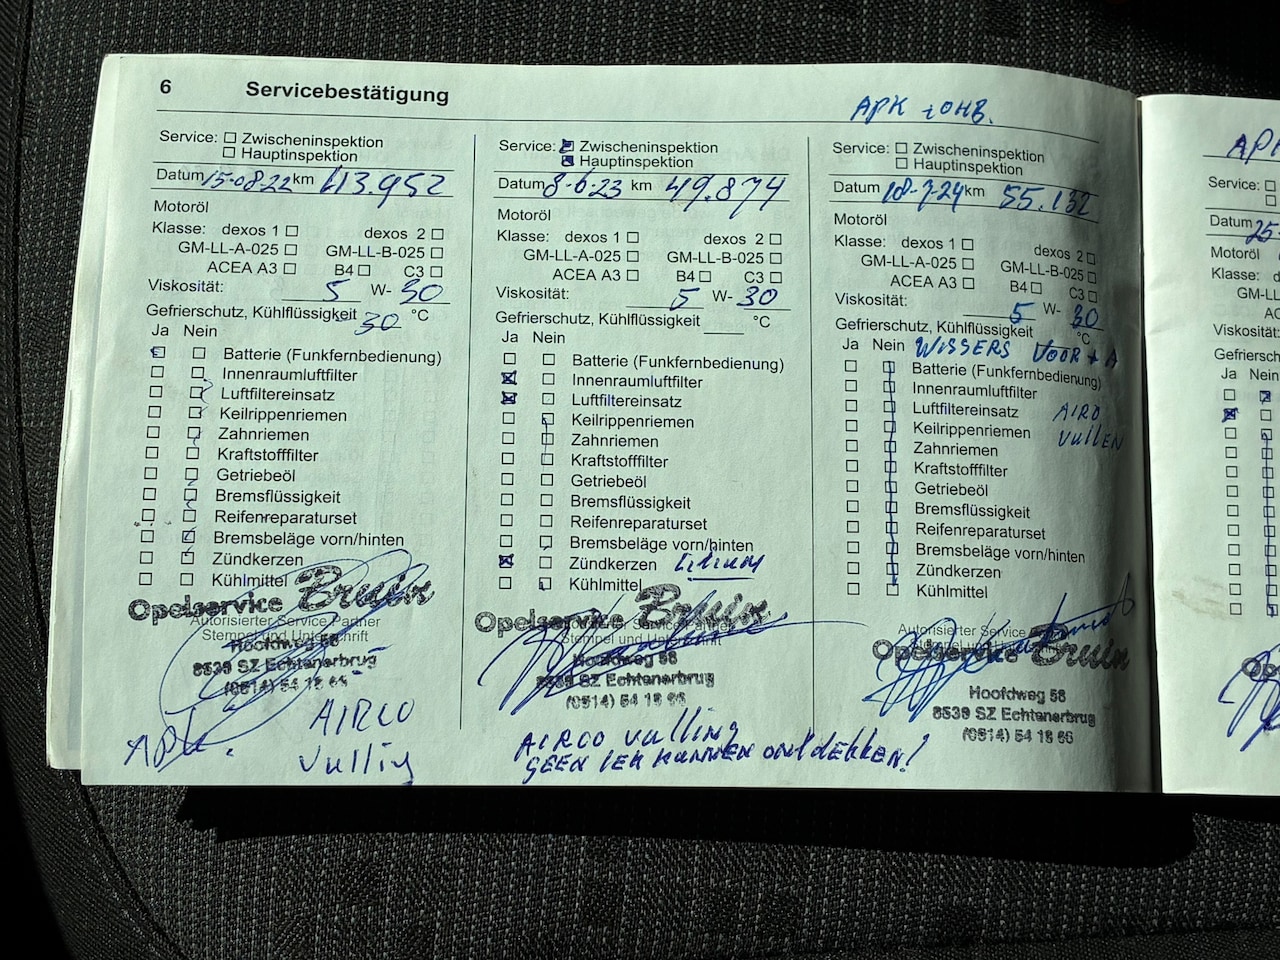 6 Servicebestätigung
APK + OHB.
Service: Zwischeninspektion
Hauptinspektion
Datum 15-08-22 km 43.952
Motoröl
Klasse: dexos 1 dexos 2
GM-LL-A-025 GM-LL-B-025
ACEA A3 B4 C3
Viskosität: 5 W- 30
Gefrierschutz, Kühlflüssigkeit 30 °C
Ja Nein
Batterie (Funkfernbedienung)
Innenraumluftfilter
Luftfiltereinsatz
Keilrippenriemen
Zahnriemen
Kraftstofffilter
Getriebeöl
Bremsflüssigkeit
Reifenreparaturset
Bremsbeläge vorn/hinten
Zündkerzen
Kühlmittel
Opelservice Bruin
Autorisierter Service Partner
Stempel und Unterschrift
Hoofdweg 58
8539 SZ Echtenerbrug
(0514) 54 18 66
APK. AIRCO
vulling
Service: Zwischeninspektion
Hauptinspektion
Datum 8-6-23 km 49.874
Motoröl
Klasse: dexos 1 dexos 2
GM-LL-A-025 GM-LL-B-025
ACEA A3 B4 C3
Viskosität: 5 W- 30
Gefrierschutz, Kühlflüssigkeit °C
Ja Nein
Batterie (Funkfernbedienung)
Innenraumluftfilter
Luftfiltereinsatz
Keilrippenriemen
Zahnriemen
Kraftstofffilter
Getriebeöl
Bremsflüssigkeit
Reifenreparaturset
Bremsbeläge vorn/hinten
Zündkerzen
Kühlmittel
Opelservice Bruin
Stempel und Unterschrift
Hoofdweg 58
8539 SZ Echtenerbrug
(0514) 54 18 66
AIRCO vulling
GEEN LEK KUNNEN ONTDEKKEN!
Service: Zwischeninspektion
Hauptinspektion
Datum 18-7-24 km 55.132
Motoröl
Klasse: dexos 1 dexos 2
GM-LL-A-025 GM-LL-B-025
ACEA A3 B4 C3
Viskosität: 5 W- 30
Gefrierschutz, Kühlflüssigkeit °C
Ja Nein WISSERS VOOR + A
Batterie (Funkfernbedienung)
Innenraumluftfilter
Luftfiltereinsatz AIRO
Keilrippenriemen vullEN
Zahnriemen
Kraftstofffilter
Getriebeöl
Bremsflüssigkeit
Reifenreparaturset
Bremsbeläge vorn/hinten
Zündkerzen
Kühlmittel
Autorisierter Service
Opelservice Bruin
Hoofdweg 58
8539 SZ Echtenerbrug
(0514) 54 18 66
Service:
Datum 25-
Motoröl
Klasse:
GM-LL
Viskosität:
Gefriersch
Ja Nein